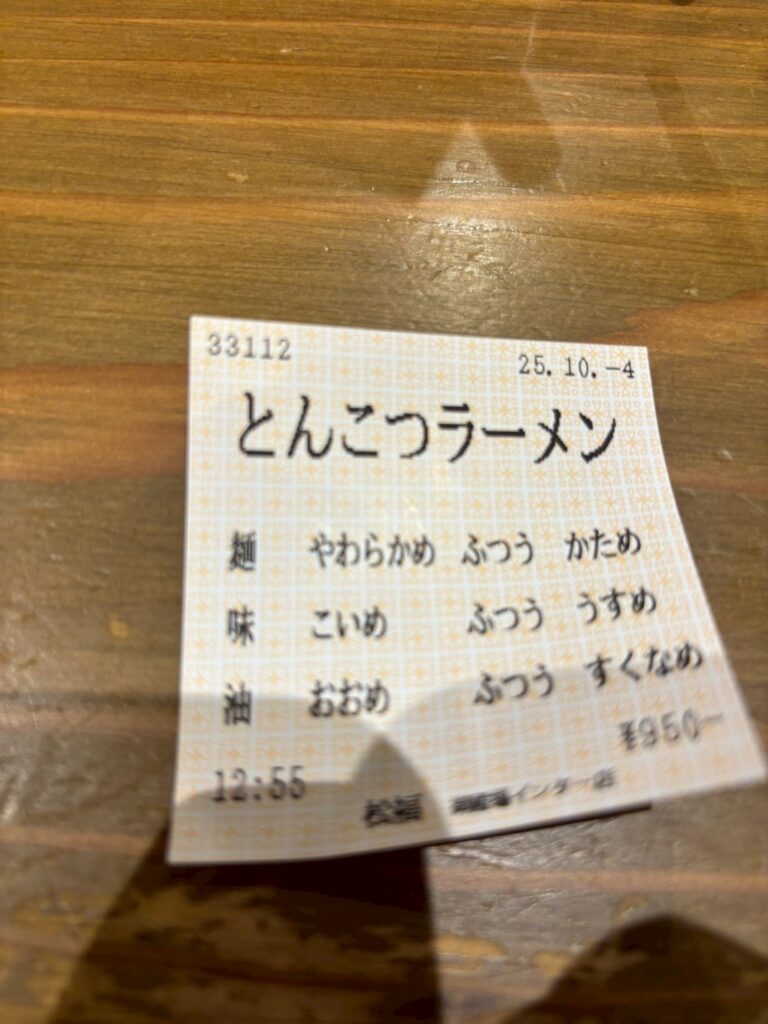 33112 25.10.-4
とんこつラーメン
麺 やわらかめ ふつう かため
味 こいめ ふつう うすめ
油 おおめ ふつう すくなめ
¥950-
12:55
松福 御殿場インター店